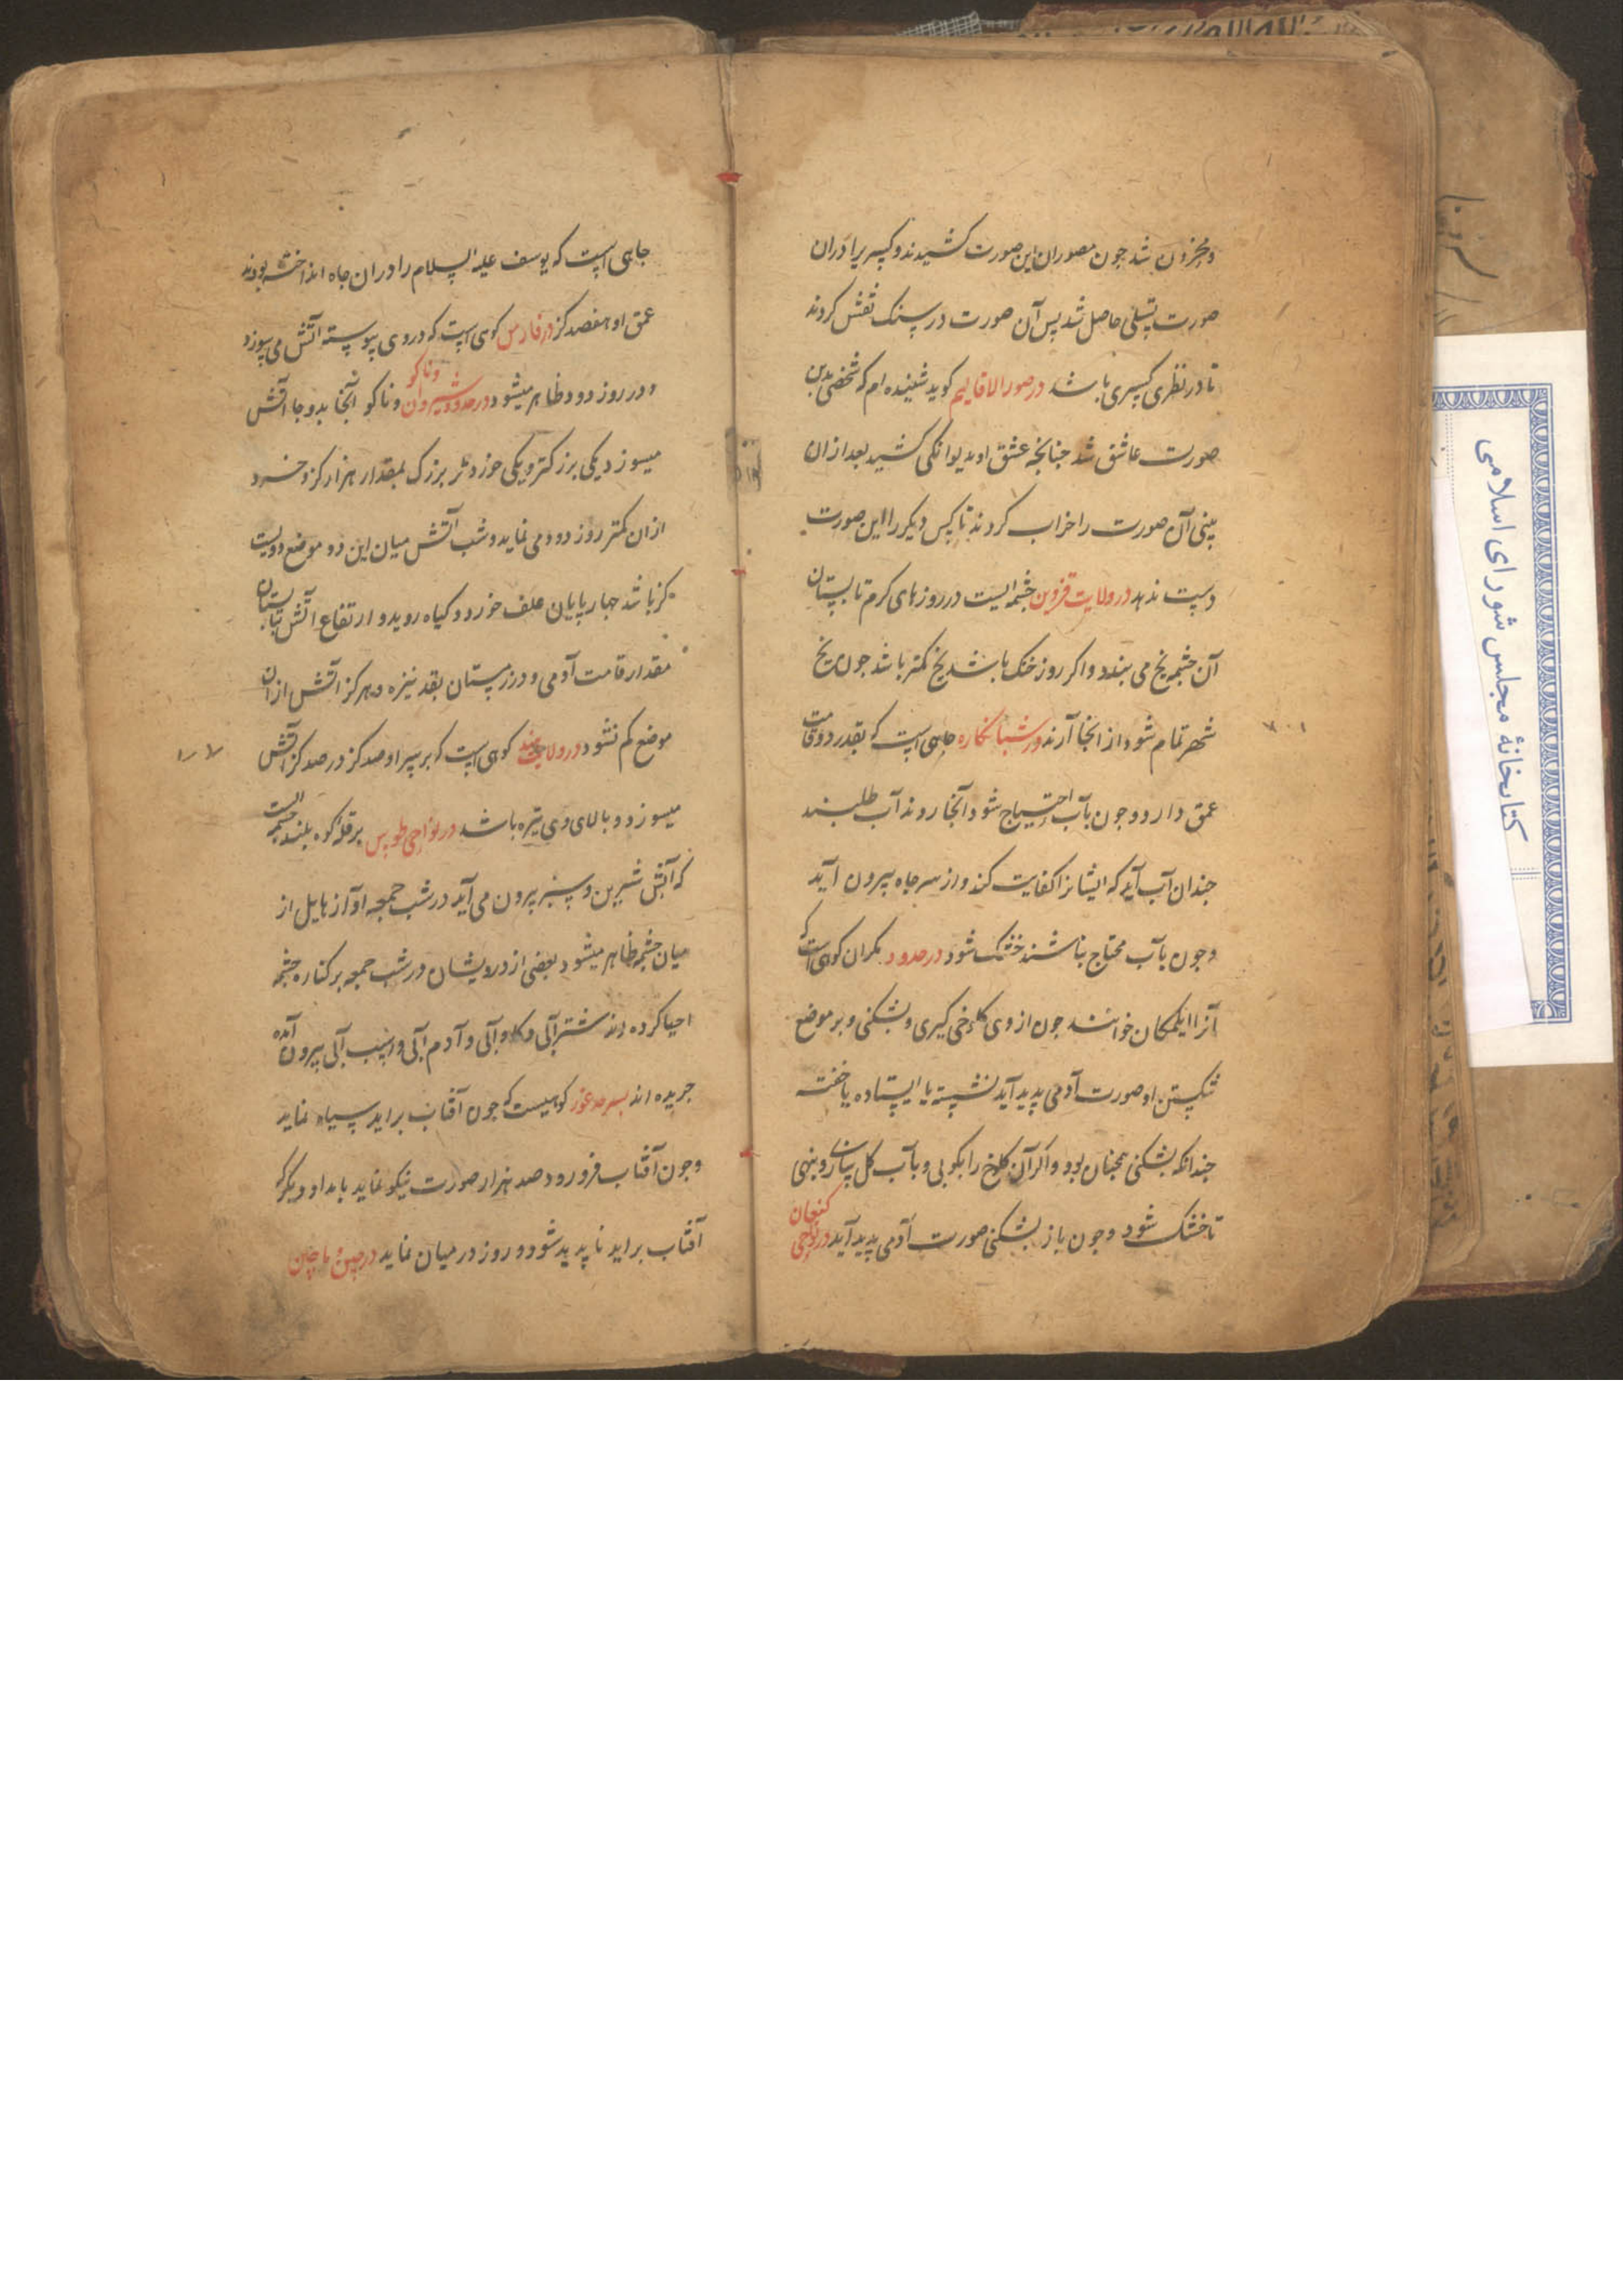 ومحزون شد جون مصوران این صورت کشیدند و کسیر برا دران
صورت تسلی حاصل شد پس آن صورت در سنک نقش کردند
تا در نظر کسری باشد در صور الاقالیم کوید شنیده ام که شخصی بدین
صورت عاشق شد جنانجه عشق او بدیوانکی کشید بعد ازان
بینی آن صورت را خراب کردند تا کس دیکر را این صورت
دست ندهد در ولایت قزوین جشمه ایست در روز های کرم تابستان
آن جشمه یخ می بندد و اکر روز خنک باشد یخ کمتر باشد جون یخ
شهر تمام شود از انجا آرند در شبانکاره جاهی است که بقدر دو قامت
عمق دارد و جون بآب احتیاج شود آنجا روند آب طلبند
جندان آب آید که ایشانرا کفایت کند و از سر جاه بیرون آید
وجون بآب محتاج نباشند خشک شود در حدود مکران کوهی است که
آنرا ایکمکان خوانند جون از وی کلوخی کیری و بشکنی و بر موضع
شکستن او صورت آدمی پدید آید نشسته یا ایستاده یا خفته
جندانکه بشکنی همجنان بود و اکر آن کلوخ را بکوبی و بآب کل سازی و بنهی
تا خشک شود وجون باز بشکنی صورت آدمی پدید آید در نواحی کنعان
جاهی است که یوسف علیه السلام را دران جاه انداخته بودند
عمق او هفصد کز در فارس کوهی است که در وی پیوسته آتش می سوزد
و در روز دود ظاهر میشود در حدود شیروان و ناکو وناکو آنجا بدو جا آتش
میسوزد یکی بزرکتر و یکی خوردتر بزرک بمقدار هزار کز و خرد
ازان کمتر روز دود می نماید و شب آتش میان این دو موضع دویست
کز باشد جهار پایان علف خورد و کیاه روید و ارتفاع آتش تابستان
مقدار قامت آدمی و در زمستان بقد نیزه و هرکز آتش از ان
موضع کم نشود در ولایت کوهی است که بر سر او صد کز در صد کز آتش
میسوزد و بالای وی تیره باشد در نواحی طوس بر قله کوه بلند جشمه ایست
که آبش شیرین و سبز بیرون می آید در شب جمعه آواز هایل از
میان جشمه ظاهر میشود بعضی از درویشان در شب جمعه بر کناره جشمه
احیا کرده اند شتر آبی و کاو آبی و آدم آبی و اسب آبی بیرون آمده
جریده اند بسرحد غور کوهیست که جون آفتاب براید سیاه نماید
وجون آفتاب فرو رود صد هزار صورت نیکو نماید بامداد دیکر که
آفتاب براید ناپدید شود و روز در میان نماید در چین و ماچین
کتابخانهٔ مجلس شورای اسلامی